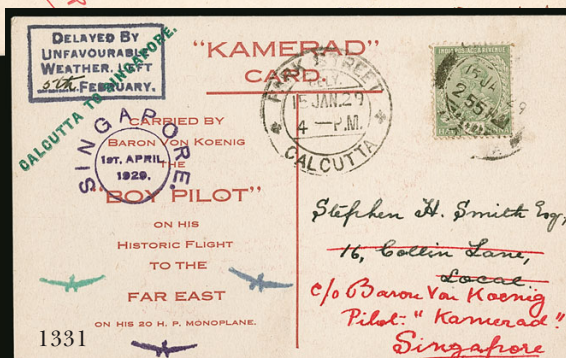 DELAYED BY
UNFAVOURABLE
WEATHER. LEFT
5th FEBRUARY.
CALCUTTA TO SINGAPORE.
"KAMERAD"
CARD.
PARK STREET
DELY.
15 JAN. 29
4 — P.M.
CALCUTTA
INDIA POSTAGE & REVENUE
SINGAPORE.
1ST. APRIL
1929.
CARRIED BY
BARON VON KOENIG
THE
"BOY PILOT"
ON HIS
HISTORIC FLIGHT
TO THE
FAR EAST
ON HIS 20 H. P. MONOPLANE.
Stephen H. Smith Esq,
16, Collin Lane,
Local.
c/o Baron Von Koenig
Pilot: "Kamerad"
Singapore
1331